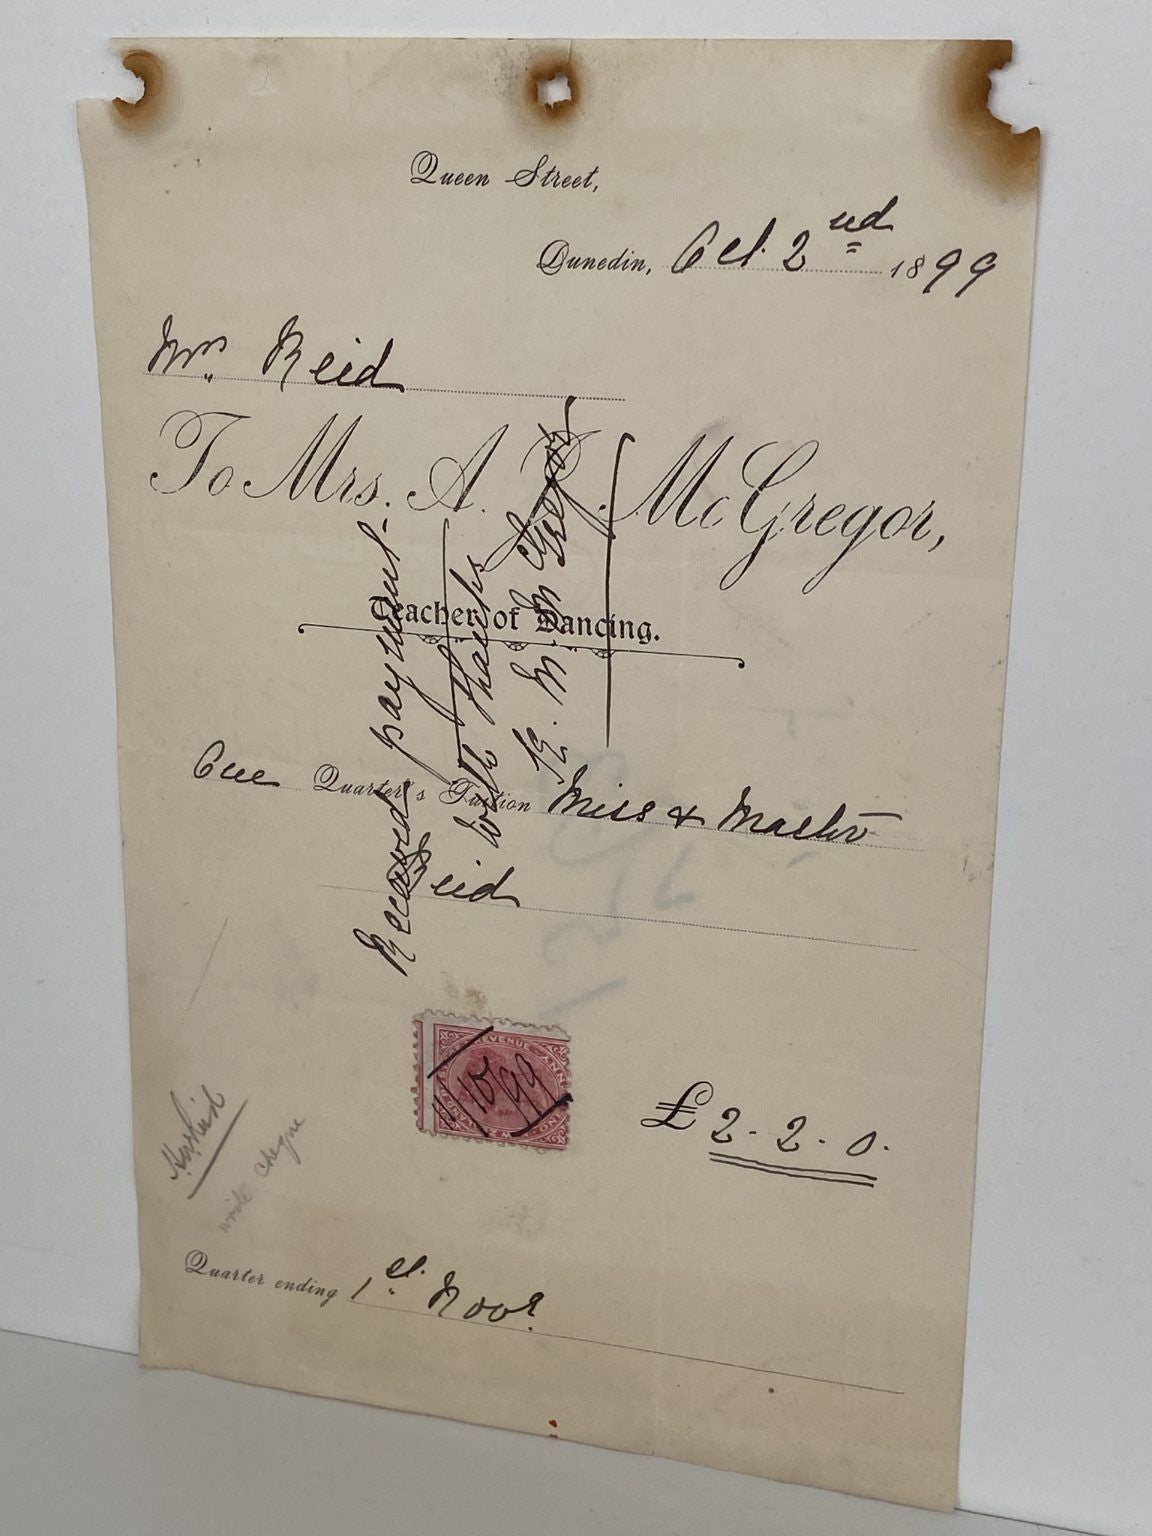 Queen Street,
Dunedin, Oct. 2nd 1899
Mrs Reid
To Mrs. A. R. McGregor,
Teacher of Dancing.
One Quarter's Tuition Miss & Master
Reid
Received payment
with thanks
McGregor
REVENUE
11/10/99
£2. 2. 0.
write cheque
Quarter ending 1st Novr